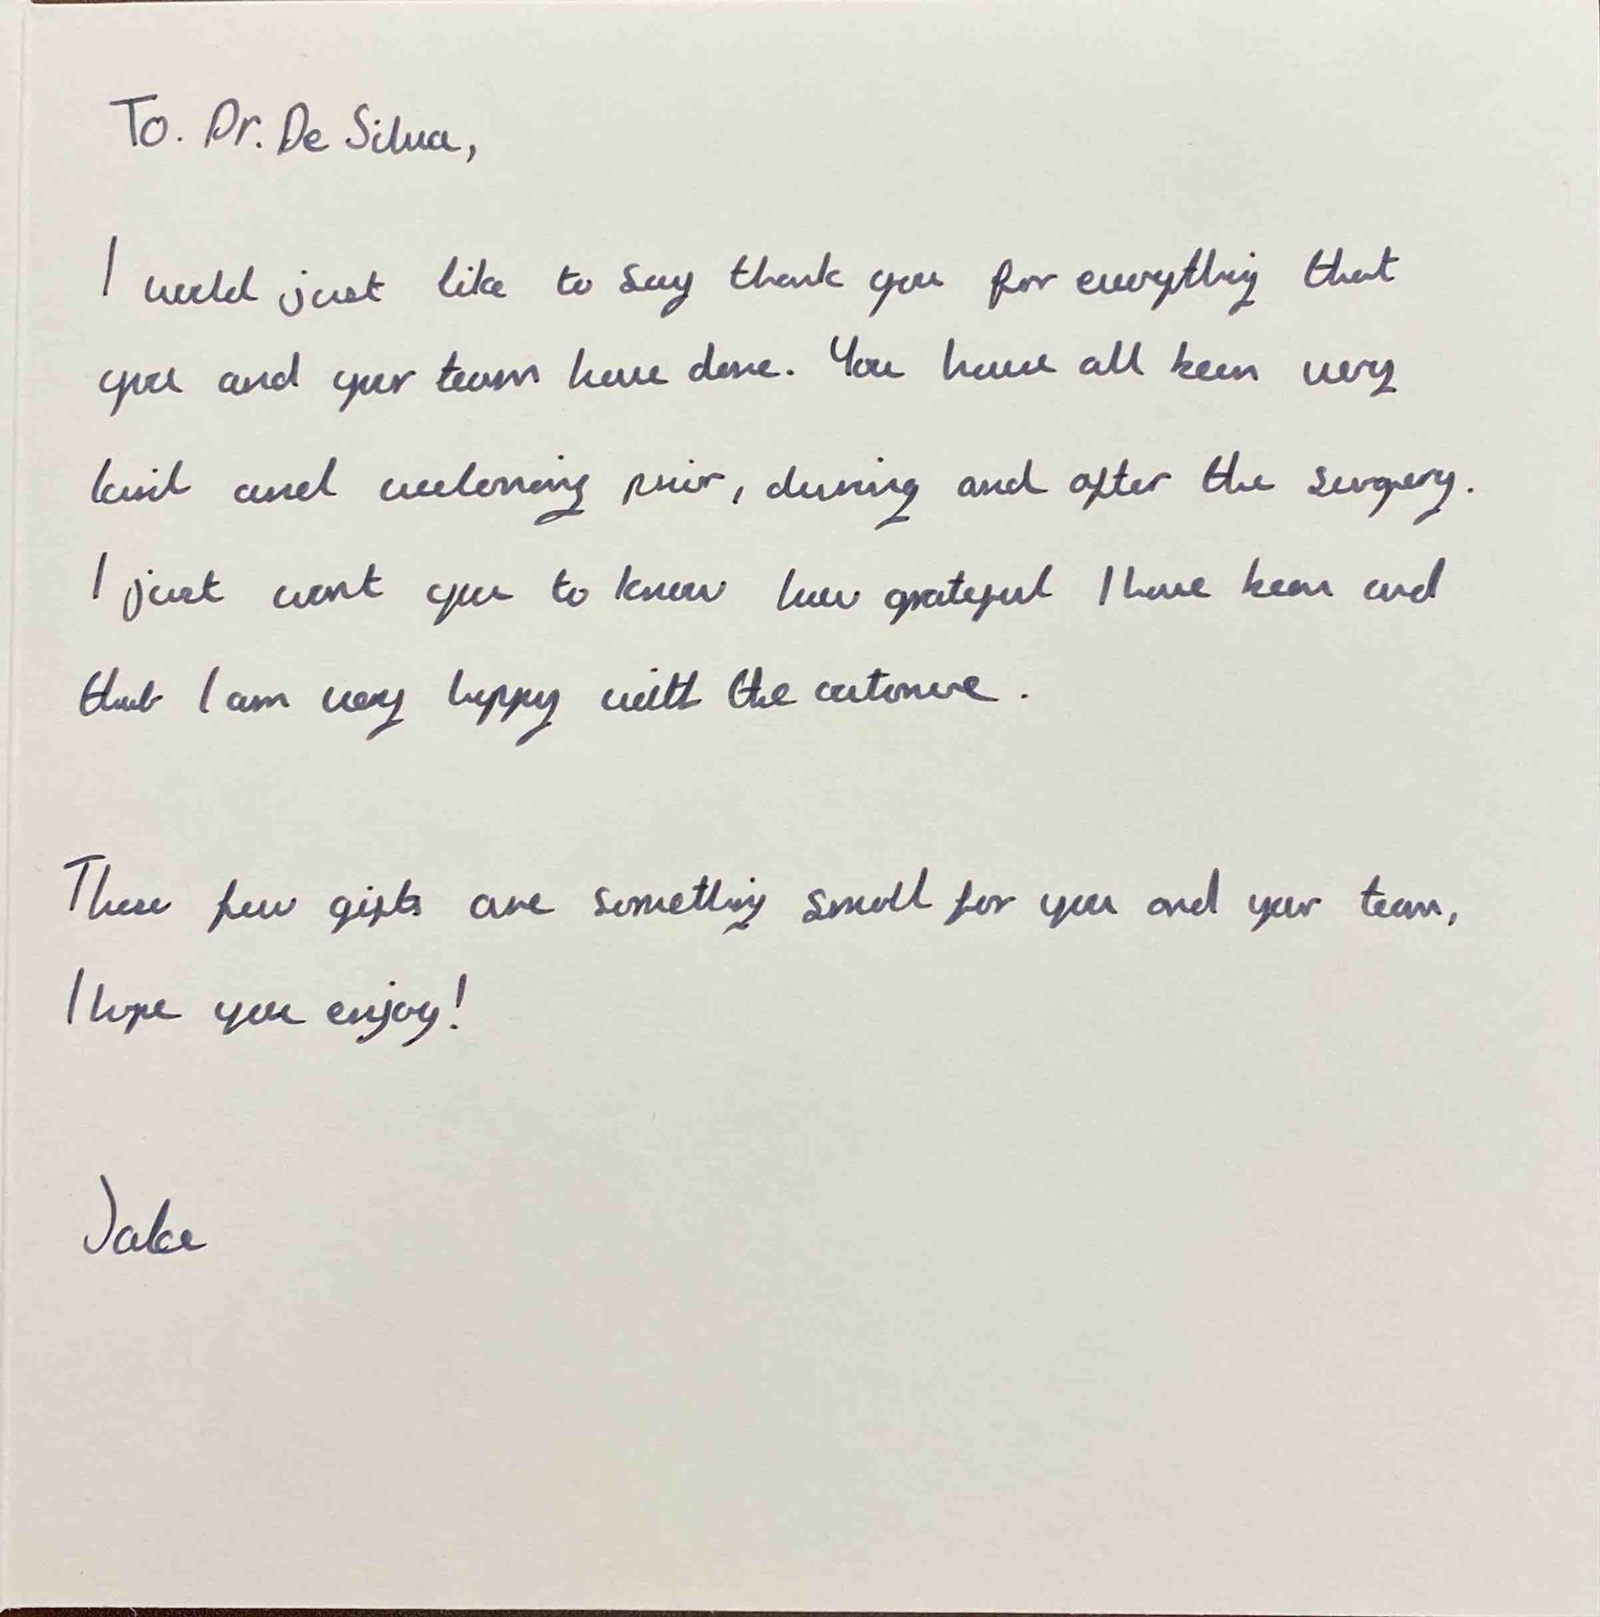 To. Dr. De Silva,
I would just like to say thank you for everything that
you and your team have done. You have all been very
kind and welcoming prior, during and after the surgery.
I just want you to know how grateful I have been and
that I am very happy with the outcome.
These few gifts are something small for you and your team,
I hope you enjoy!
Jake